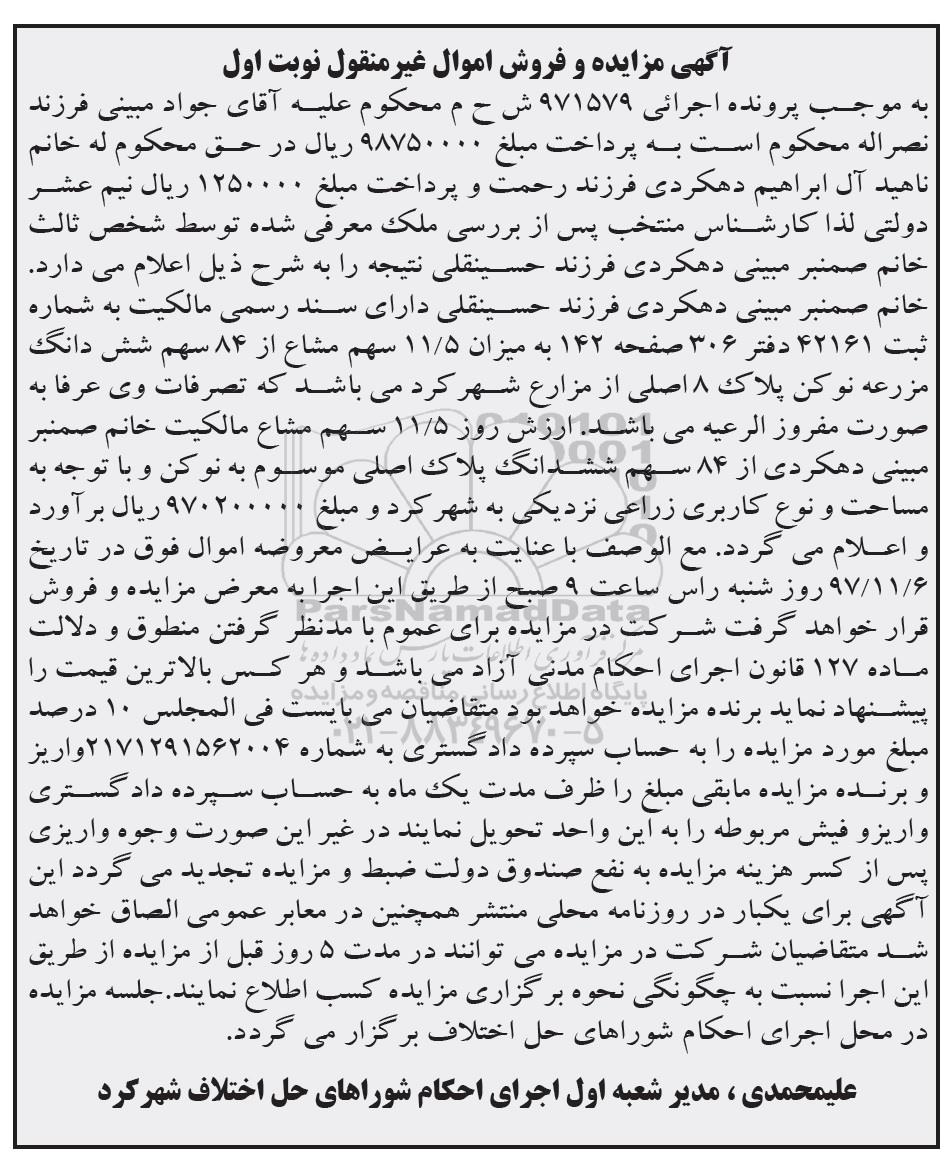 آگهی مزایده و فروش اموال غیرمنقول نوبت اول
به موجب پرونده اجرائی ۹۷۱۵۷۹ ش ح م محکوم علیه آقای جواد مبینی فرزند
نصراله محکوم است به پرداخت مبلغ ۹۸۷۵۰۰۰۰ ریال در حق محکوم له خانم
ناهید آل ابراهیم دهکردی فرزند رحمت و پرداخت مبلغ ۱۲۵۰۰۰۰ ریال نیم عشر
دولتی لذا کارشناس منتخب پس از بررسی ملک معرفی شده توسط شخص ثالث
خانم صمنبر مبینی دهکردی فرزند حسینقلی نتیجه را به شرح ذیل اعلام می دارد.
خانم صمنبر مبینی دهکردی فرزند حسینقلی دارای سند رسمی مالکیت به شماره
ثبت ۴۲۱۶۱ دفتر ۳۰۶ صفحه ۱۴۲ به میزان ۱۱/۵ سهم مشاع از ۸۴ سهم شش دانگ
مزرعه نوکن پلاک ۸ اصلی از مزارع شهرکرد می باشد که تصرفات وی عرفا به
صورت مفروز الرعیه می باشد. ارزش روز ۱۱/۵ سهم مشاع مالکیت خانم صمنبر
مبینی دهکردی از ۸۴ سهم ششدانگ پلاک اصلی موسوم به نوکن و با توجه به
مساحت و نوع کاربری زراعی نزدیکی به شهرکرد و مبلغ ۹۷۰۲۰۰۰۰۰ ریال برآورد
و اعلام می گردد. مع الوصف با عنایت به عرایض معروضه اموال فوق در تاریخ
۹۷/۱۱/۶ روز شنبه راس ساعت ۹ صبح از طریق این اجرا به معرض مزایده و فروش
قرار خواهد گرفت شرکت در مزایده برای عموم با مدنظر گرفتن منطوق و دلالت
ماده ۱۲۷ قانون اجرای احکام مدنی آزاد می باشد و هر کس بالاترین قیمت را
پیشنهاد نماید برنده مزایده خواهد بود متقاضیان می بایست فی المجلس ۱۰ درصد
مبلغ مورد مزایده را به حساب سپرده دادگستری به شماره ۲۱۷۱۲۹۱۵۶۲۰۰۴واریز
و برنده مزایده مابقی مبلغ را ظرف مدت یک ماه به حساب سپرده دادگستری
واریزو فیش مربوطه را به این واحد تحویل نمایند در غیر این صورت وجوه واریزی
پس از کسر هزینه مزایده به نفع صندوق دولت ضبط و مزایده تجدید می گردد این
آگهی برای یکبار در روزنامه محلی منتشر همچنین در معابر عمومی الصاق خواهد
شد متقاضیان شرکت در مزایده می توانند در مدت ۵ روز قبل از مزایده از طریق
این اجرا نسبت به چگونگی نحوه برگزاری مزایده کسب اطلاع نمایند.جلسه مزایده
در محل اجرای احکام شوراهای حل اختلاف برگزار می گردد.
علیمحمدی ، مدیر شعبه اول اجرای احکام شوراهای حل اختلاف شهرکرد
ParsNamadData
مرکز فرآوری اطلاعات پارس نماد داده ها
پایگاه اطلاع رسانی مناقصه و مزایده
۰۲۱-۸۸۳۴۹۶۷۰-۵